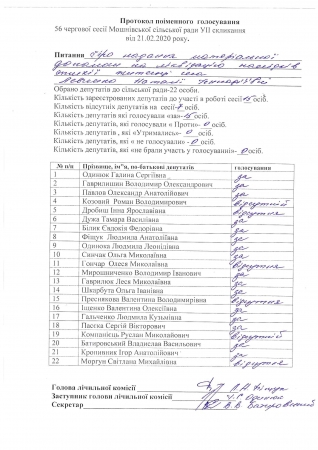 Протокол поіменного голосування
56 чергової сесії Мошнівської сільської ради УІІ скликання
від 21.02.2020 року.
Питання Про надання матеріальної
допомоги на ліквідацію наслідків
стихії жительці села
Наталії Григорівні
Обрано депутатів до сільської ради-22 особи.
Кількість зареєстрованих депутатів до участі в роботі сесії-15 осіб.
Кількість відсутніх депутатів на сесії-7 осіб.
Кількість депутатів, які голосували «за»-15 осіб.
Кількість депутатів, які голосували « Проти»- 0 осіб.
Кількість депутатів, які «Утримались» 0 осіб.
Кількість депутатів, « які не голосували» - 0 осіб.
Кількість депутатів, які «не брали участь у голосуванні»- 0 осіб.
№ п/п Прізвище, ім'я, по-батькові депутатів голосування
1 Одинюк Галина Сергіївна за
2 Гаврилишин Володимир Олександрович за
3 Павлов Олександр Анатолійович за
4 Козовий Роман Володимирович відсутній
5 Дробиш Інна Ярославівна за
6 Дужа Тамара Василівна відсутня
7 Білик Євдокія Федорівна за
8 Фіщук Людмила Анатоліївна за
9 Одинока Людмила Леонідівна за
10 Синчак Ольга Миколаївна за
11 Гончар Олеся Миколаївна відсутня
12 Мирошниченко Володимир Іванович за
13 Гаврилюк Леся Миколаївна за
14 Шкарбута Ольга Іванівна за
15 Преснякова Валентина Володимирівна відсутня
16 Іщенко Валентина Олексіївна за
17 Гальченко Людмила Кузьмівна за
18 Пасєка Сергій Вікторович за
19 Компанієць Руслан Миколайович відсутній
20 Батировський Владислав Васильович за
21 Кропивник Ігор Анатолійович за
22 Моргун Світлана Михайлівна відсутня
Голова лічильної комісії Л.А. Фіщук
Заступник голови лічильної комісії
Секретар В.В. Батировський